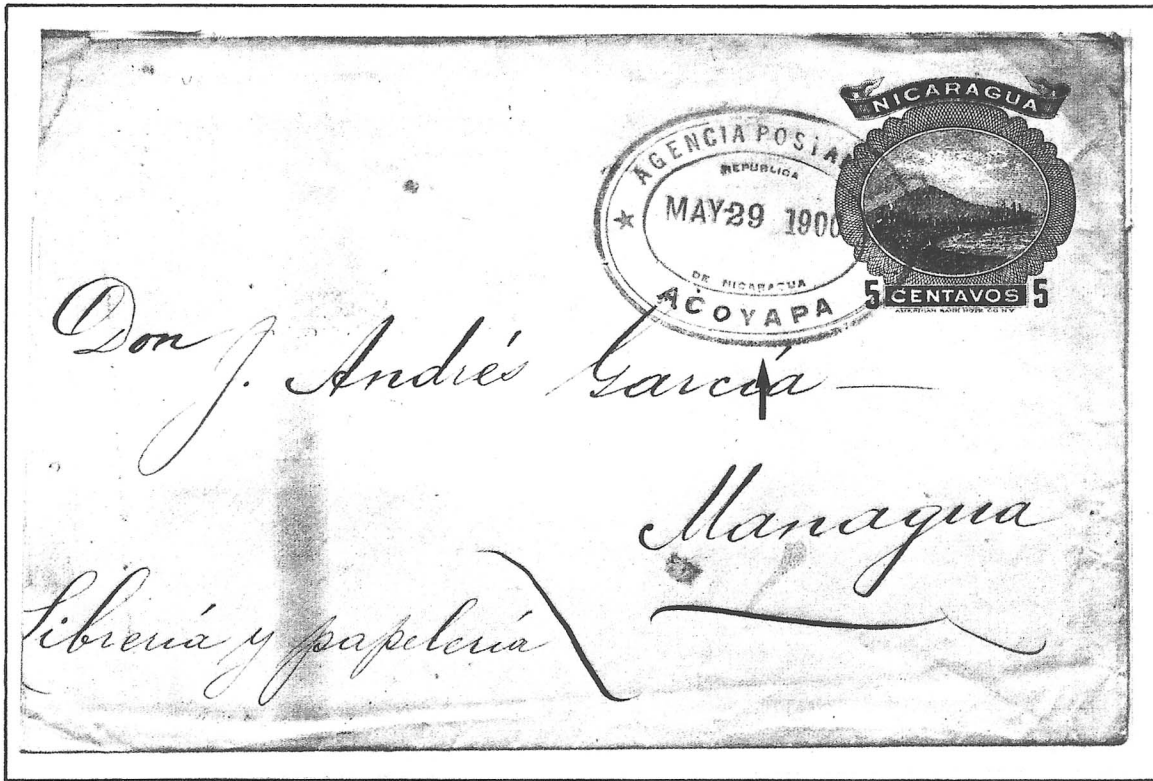 NICARAGUA
5 CENTAVOS 5
AMERICAN BANK NOTE CO NY
AGENCIA POSTAL
REPUBLICA
MAY 29 1900
DE NICARAGUA
ACOYAPA
Don J. Andrés García
Managua
Librería y papelería